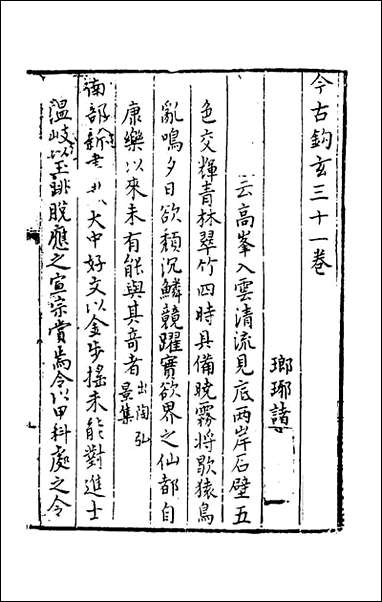 今古鈎玄三十一卷
瑯琊諸
云高峯入雲清流見底兩岸石壁五
色交輝青林翠竹四時具備曉霧將歇猿鳥
亂鳴夕日欲頹沉鱗競躍實欲界之仙都自
康樂以來未有能與其竒者出陶弘景集
南部新書大中好文以金步搖未能對進士
溫岐以玉跳脫應之宣宗賞焉令以甲科處之令